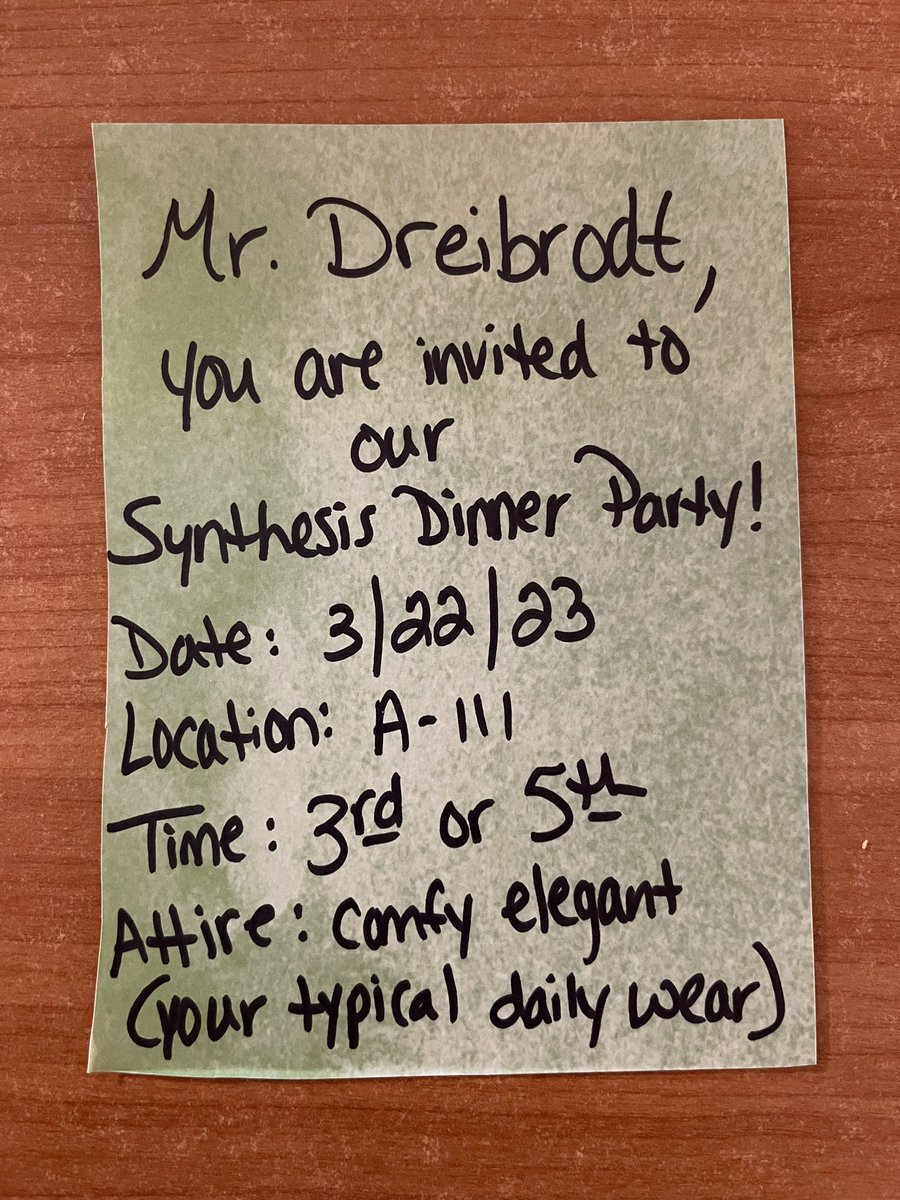 Mr. Dreibrodt,
you are invited to
our
Synthesis Dinner Party!
Date: 3/22/23
Location: A-111
Time: 3rd or 5th
Attire: comfy elegant
(your typical daily wear)